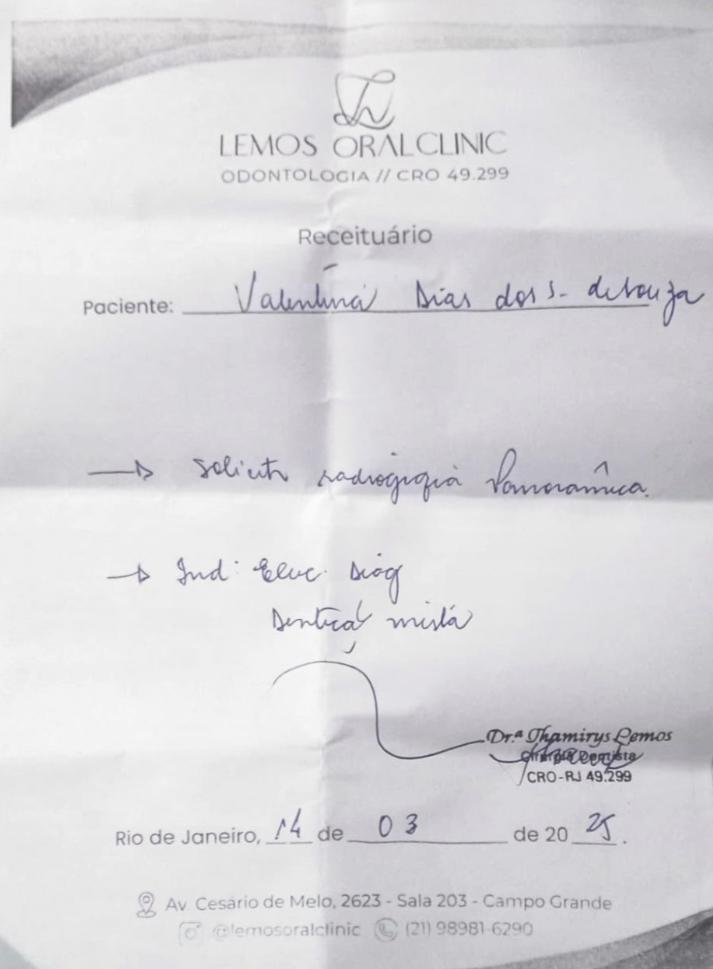 LEMOS ORALCLINIC
ODONTOLOGIA // CRO 49.299
Receituário
Paciente: Valentina Dias dos S. de Souza
→ Solicito radiografia Panorâmica.
→ Ind: Eluc. Diag
Dentição mista
Dr.ª Thamirys Lemos
Cirurgiã Dentista
CRO-RJ 49.299
Rio de Janeiro, 14 de 03 de 20 25.
Av. Cesário de Melo, 2623 - Sala 203 - Campo Grande
@lemosoralclinic (21) 98981-6290